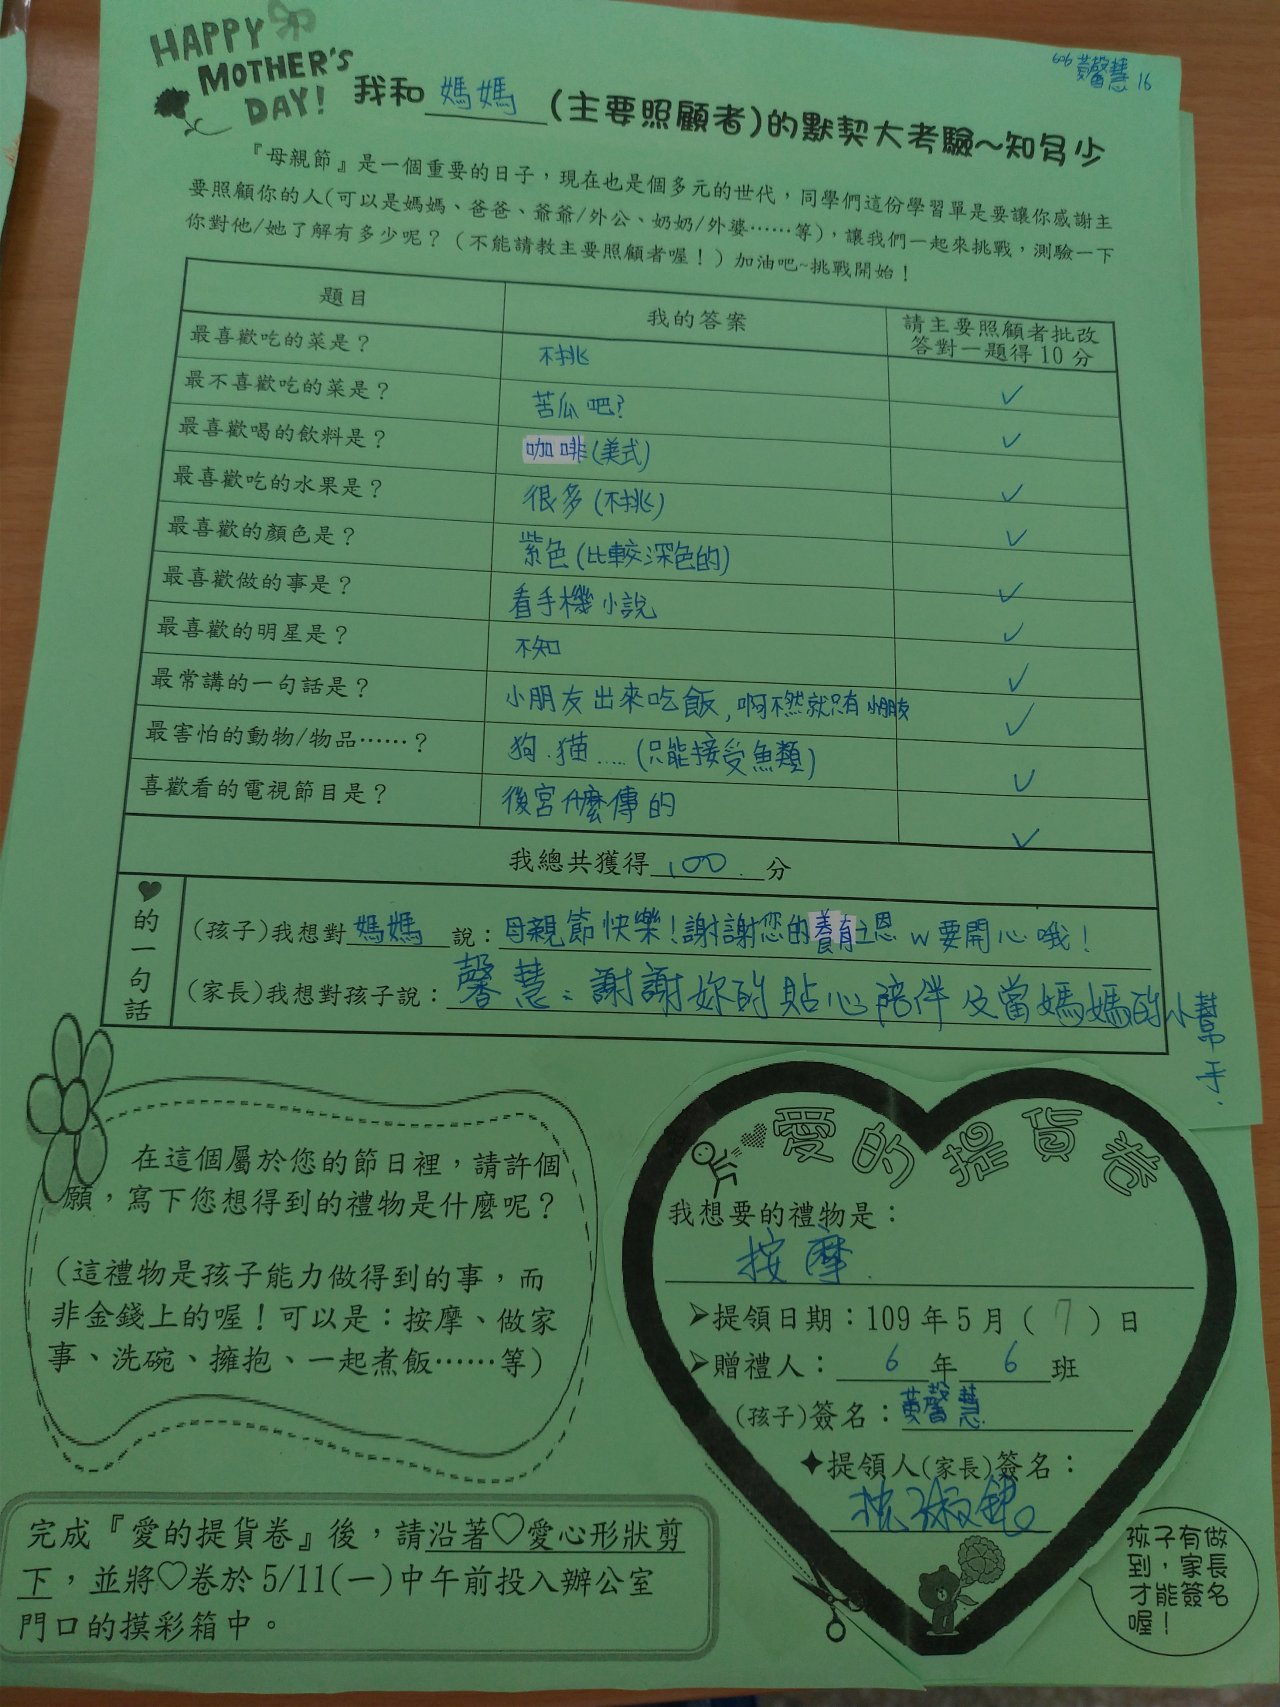 HAPPY
MOTHER'S
DAY!
606 黃馨慧 16
我和 媽媽 (主要照顧者)的默契大考驗~知多少
『母親節』是一個重要的日子,現在也是個多元的世代,同學們這份學習單是要讓你感謝主
要照顧你的人(可以是媽媽、爸爸、爺爺/外公、奶奶/外婆……等),讓我們一起來挑戰,測驗一下
你對他/她了解有多少呢?(不能請教主要照顧者喔!)加油吧~挑戰開始!
題目 我的答案 請主要照顧者批改
答對一題得10分
最喜歡吃的菜是? 不挑 ✓
最不喜歡吃的菜是? 苦瓜吧? ✓
最喜歡喝的飲料是? 咖啡(美式) ✓
最喜歡吃的水果是? 很多(不挑) ✓
最喜歡的顏色是? 紫色(比較深色的) ✓
最喜歡做的事是? 看手機小說 ✓
最喜歡的明星是? 不知 ✓
最常講的一句話是? 小朋友出來吃飯,啊不然就只有小朋友 ✓
最害怕的動物/物品……? 狗.猫.....(只能接受魚類) ✓
喜歡看的電視節目是? 後宮什麼傳的 ✓
我總共獲得 100 分
♥的一句話
(孩子)我想對 媽媽 說:母親節快樂!謝謝您的養育之恩 w 要開心哦!
(家長)我想對孩子說:馨慧:謝謝妳的貼心陪伴及當媽媽的小幫手.
在這個屬於您的節日裡,請許個
願,寫下您想得到的禮物是什麼呢?
(這禮物是孩子能力做得到的事,而
非金錢上的喔!可以是:按摩、做家
事、洗碗、擁抱、一起煮飯……等)
愛的提貨卷
我想要的禮物是:
按摩.
➢提領日期:109年5月(7)日
➢贈禮人: 6 年 6 班
(孩子)簽名:黃馨慧
✦提領人(家長)簽名:
完成『愛的提貨卷』後,請沿著♡愛心形狀剪
下,並將♡卷於5/11(一)中午前投入辦公室
門口的摸彩箱中。
孩子有做
到,家長
才能簽名
喔!